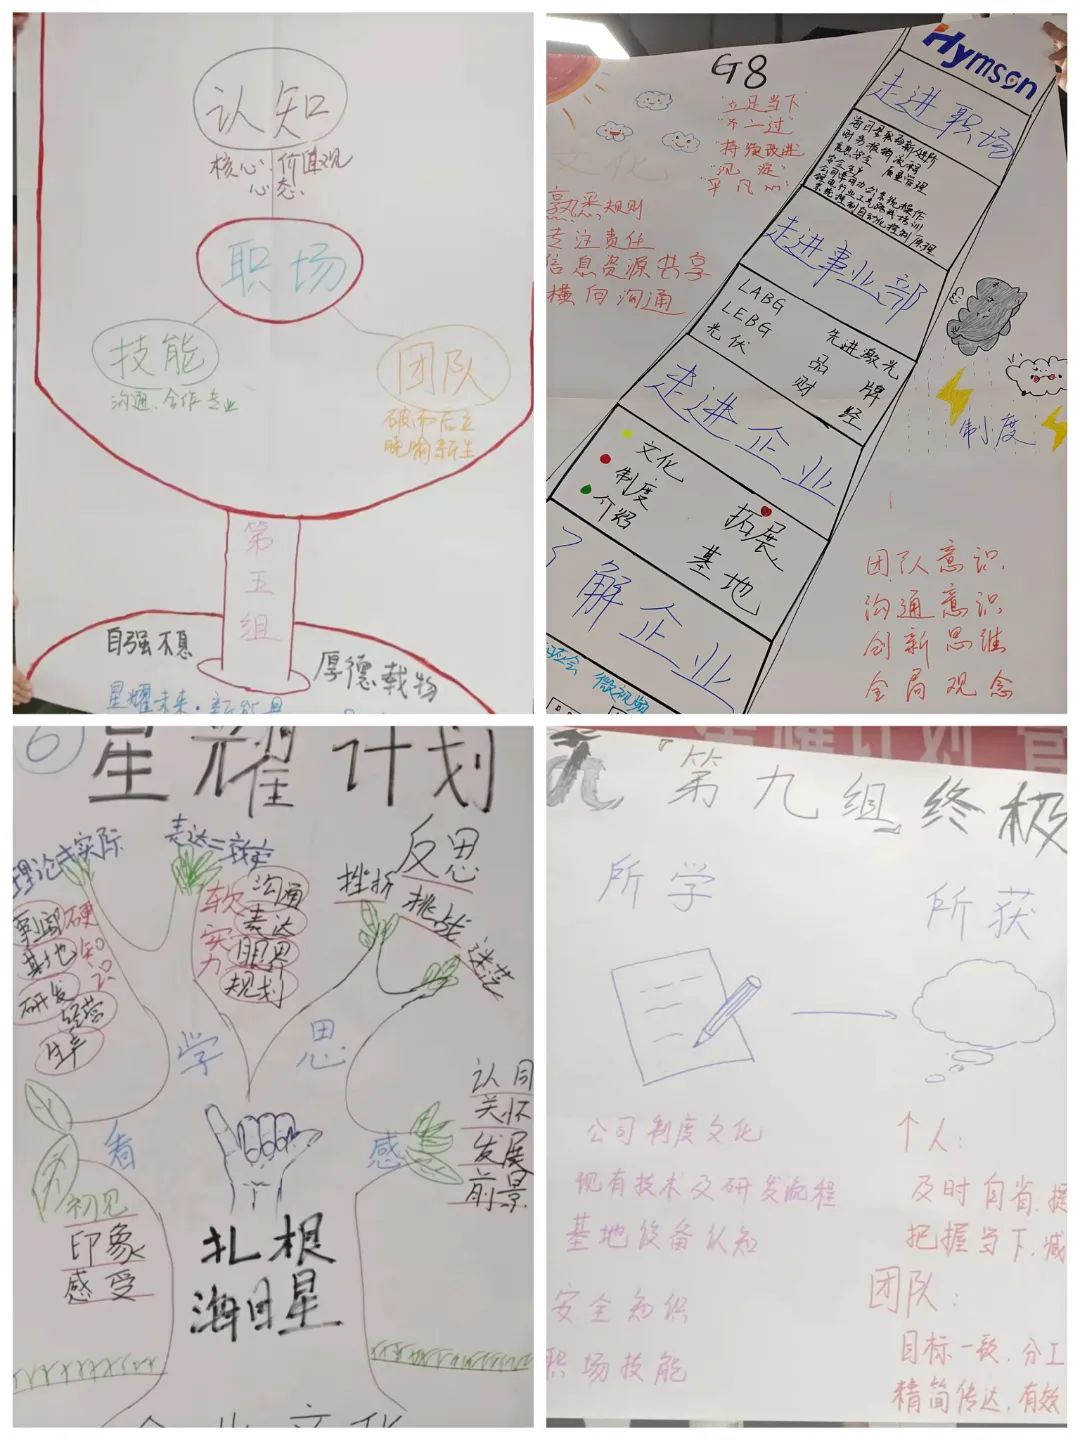 认知
核心 价值观
心态
职场
技能
沟通、合作 专业
团队
破而后立
晓喻新生
第
五
组
自强不息
厚德载物
星耀未来·新
G8
"立足当下"
"不二过"
"持续改进"
"沉 淀"
"平凡心"
文化
熟悉规则
专注责任
信息资源共享
横向沟通
Hymson
走进职场
财务报销流程
信息安全 质量管理
安全生产
走进事业部
LABG
LEBG
光伏
先进激光
品牌
财经
走进企业
文化
制度
介绍
拓展
基地
了解企业
微视频
制度
团队意识
沟通意识
创新思维
全局观念
6
星耀计划
理论 实际
表达
反思
挫折
挑战
迷茫
硬
知
识
基地
研发
经营
生产
软
实
力
沟通
表达
眼界
规划
学
思
看
感
初见
印象
感受
认同
关怀
发展
前景
扎根
海目星
企业文化
『第九组』终极
所学
所获
公司制度文化
现有技术及研发流程
基地设备认知
安全知识
职场技能
个人：
及时自省,提
把握当下,减
团队：
目标一致,分工
精简传达,有效